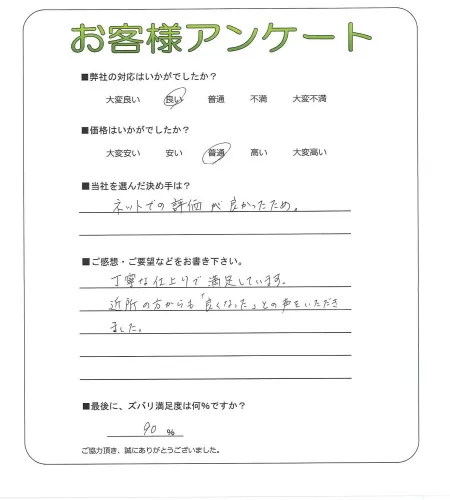 お客様アンケート
■弊社の対応はいかがでしたか?
大変良い 良い 普通 不満 大変不満
■価格はいかがでしたか?
大変安い 安い 普通 高い 大変高い
■当社を選んだ決め手は?
ネットでの評価が良かったため。
■ご感想・ご要望などをお書き下さい。
丁寧な仕上りで満足しています。
近所の方からも「良くなった」との声をいただき
ました。
■最後に、ズバリ満足度は何%ですか?
90 %
ご協力頂き、誠にありがとうございました。